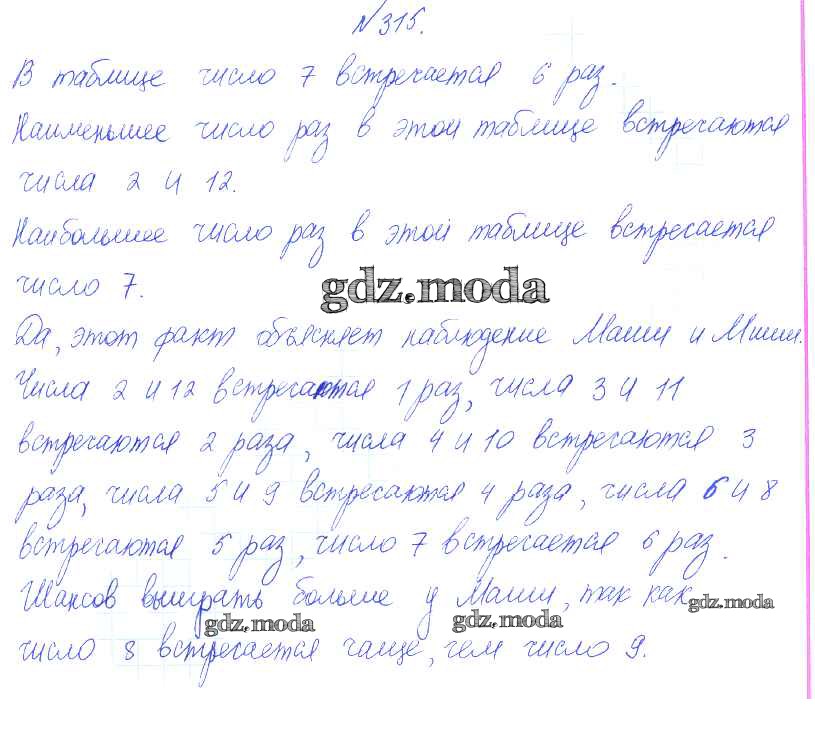 №315.
В таблице число 7 встречается 6 раз.
Наименьшее число раз в этой таблице встречаются
числа 2 и 12.
Наибольшее число раз в этой таблице встречается
число 7.
gdz.moda
Да, этот факт объясняет наблюдение Маши и Миши.
Числа 2 и 12 встречаются 1 раз, числа 3 и 11
встречаются 2 раза, числа 4 и 10 встречаются 3
раза, числа 5 и 9 встречаются 4 раза, числа 6 и 8
встречаются 5 раз, число 7 встречается 6 раз.
Шансов выиграть больше у Маши, так как
gdz.moda
gdz.moda
gdz.moda
число 8 встречается чаще, чем число 9.